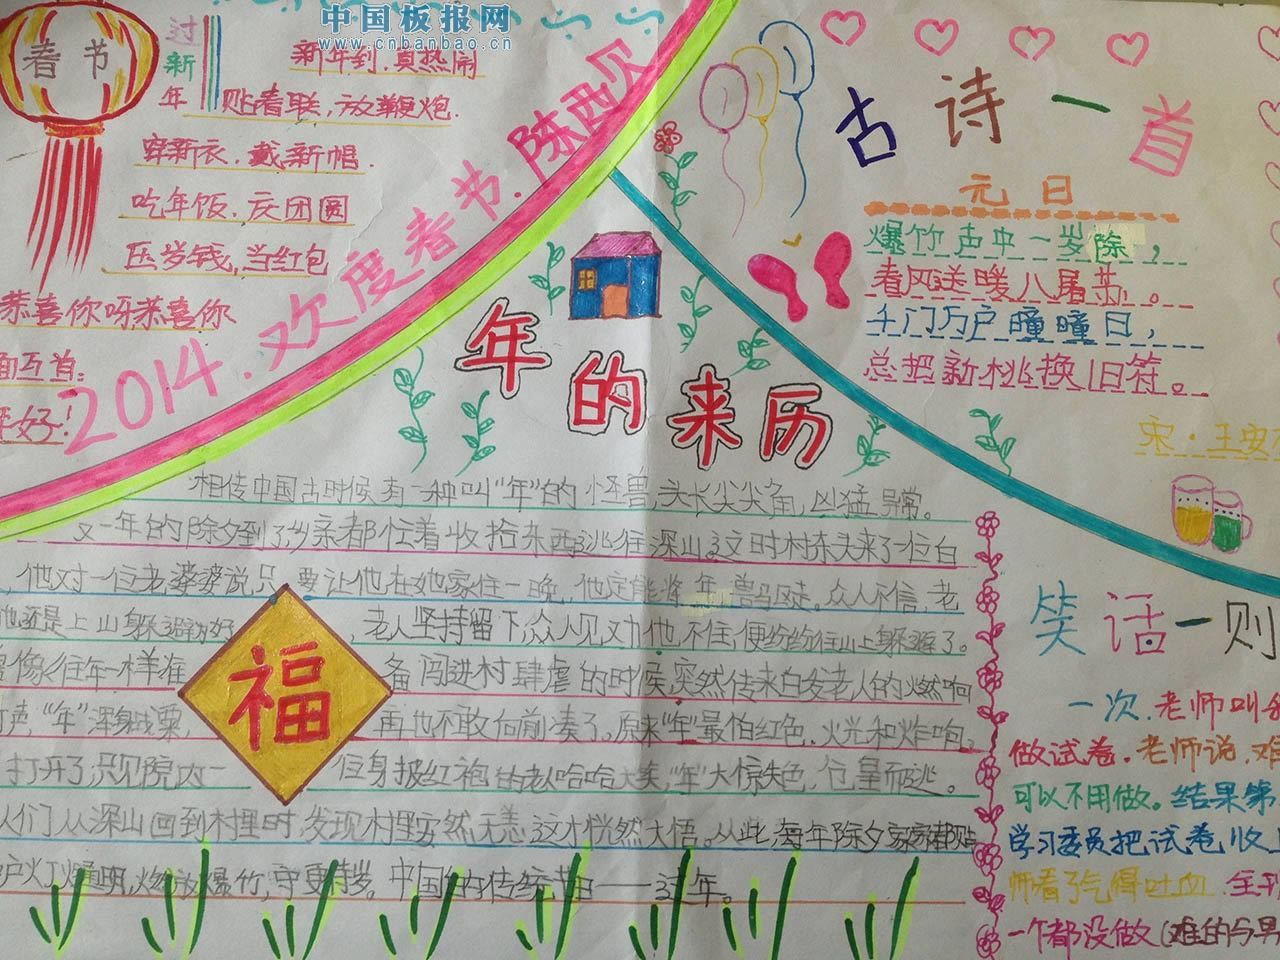 中国板报网
www.cnbanbao.cn
春节
过新年
新年到,真热闹
贴春联,放鞭炮.
穿新衣.戴新帽.
吃年饭.庆团圆
压岁钱,当红包
恭喜你呀恭喜你
面互首:
好!
2014.欢度春节.陈西贝
古诗一首
元日
爆竹声中一岁除,
春风送暖入屠苏。
千门万户曈曈日,
总把新桃换旧符。
宋·王安
年的来历
相传中国古时候有一种叫“年”的怪兽,头长尖尖角,凶猛异常。
又一年的除夕到了乡亲都忙着收拾东西逃往深山这时村东头来了一位白
他对一位老婆婆说只要让他在她家住一晚,他定能将年兽驱走。众人不信,老
她还是上山躲避为好,老人坚持留下,众人见劝他不住,便纷纷往山上躲避了。
像往年一样准备闯进村肆虐的时候,突然传来白发老人的燃响
声,“年”浑身战栗,再也不敢向前凑了,原来“年”最怕红色、火光和炸响。
打开了,只见院内一位身披红袍的老人哈哈大笑,“年”大惊失色,仓皇而逃。
人们从深山回到村里时,发现村里安然无恙这才恍然大悟。从此,每年除夕家家都贴
户灯火通明,燃放爆竹,守更待岁。中国的传统节日——过年。
福
笑话一则
一次.老师叫
做试卷.老师说.难
可以不用做。结果第
学习委员把试卷收
师看了气得吐血.全
一个都没做(难的与